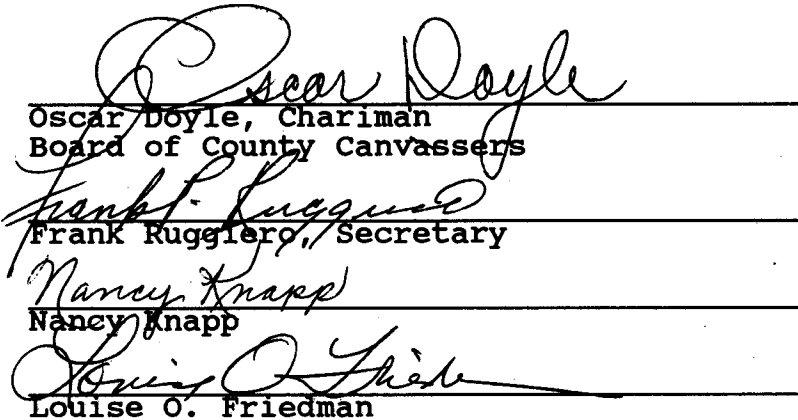 Oscar Doyle
Oscar Doyle, Chariman
Board of County Canvassers
Frank P. Ruggiero
Frank Ruggiero, Secretary
Nancy Knapp
Nancy Knapp
Louise O. Friedman
Louise O. Friedman